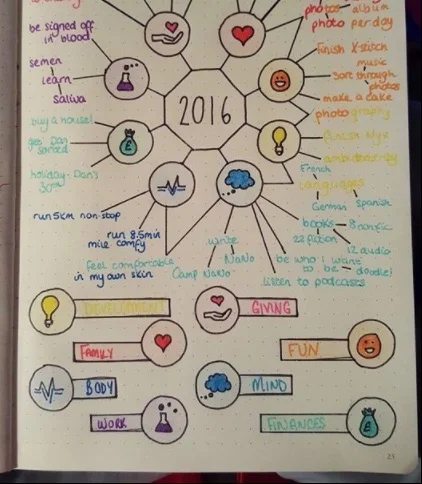 photos album
photo per day
be signed off
in blood
semen
learn
Saliva
finish X-stitch
music
sort through
photos
make a cake
photography
2016
buy a house!
get Dan
sorted
holiday - Dan's
30th
finish Nyx
ambidextrity
French
languages
German Spanish
run 5km non-stop
run 8.5min
mile comfy
feel comfortable
in my own skin
write
NaNo
Camp NaNo
books - 8 nonfic
22 fiction
12 audio
be who I want
to be - doodle!
listen to podcasts
DEVELOPMENT
GIVING
FAMILY
FUN
BODY
MIND
WORK
FINANCES